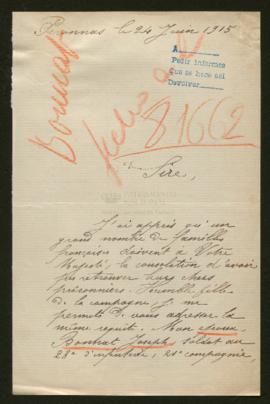 Peronnas le 24 Juin 1915
A
Pedir informes
Que se hace así
Devolver
Bonnat
81662
Sire,
J'ai appris qu'un
grand nombre de familles
françaises doivent à Votre
Majesté, la consolation d'avoir
pu retrouver leurs chers
prisonniers. Humble fille
de la campagne, je me
permets de vous adresser la
même requête. Mon
Bonnat Joseph, soldat au
28e d'infanterie, 21e compagnie,